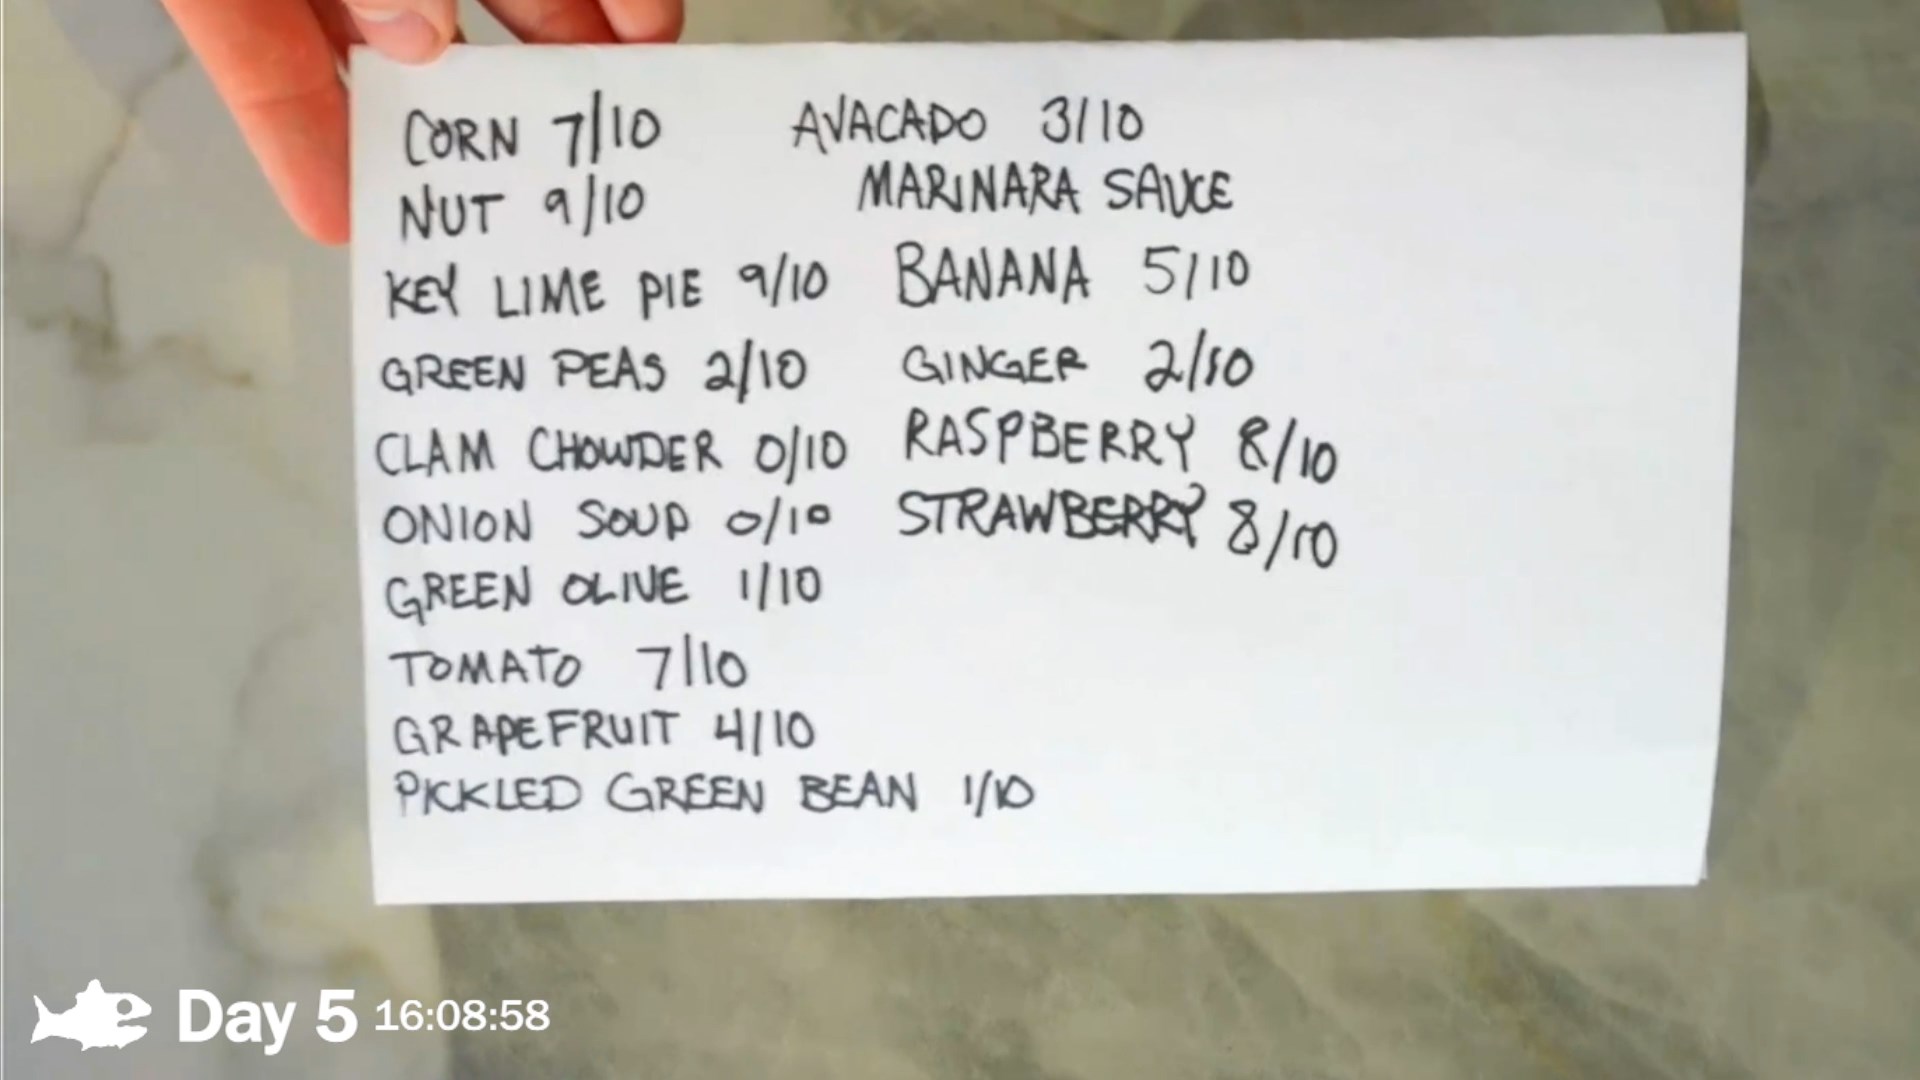 CORN 7/10
NUT 9/10
KEY LIME PIE 9/10
GREEN PEAS 2/10
CLAM CHOWDER 0/10
ONION SOUP 0/10
GREEN OLIVE 1/10
TOMATO 7/10
GRAPEFRUIT 4/10
PICKLED GREEN BEAN 1/10
AVACADO 3/10
MARINARA SAUCE
BANANA 5/10
GINGER 2/10
RASPBERRY 8/10
STRAWBERRY 8/10
Day 5 16:08:58